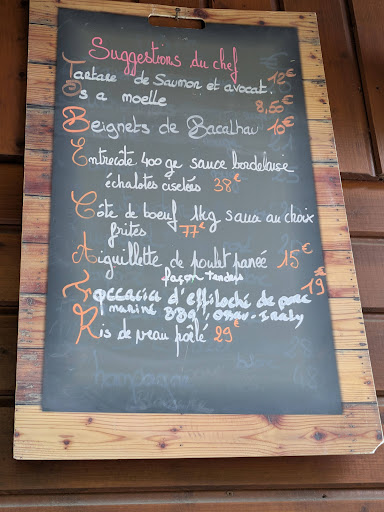 Suggestions du chef
Tartare de Saumon et avocat. 12€
Os a moelle 8,50€
Beignets de Bacalhau 10€
Entrecôte 400gr sauce bordelaise
échalotes ciselées 38€
Côte de boeuf 1kg sauce au choix
frites 77€
Aiguillette de poulet panée 15€
façon Tenders
Foccacia d'effiloché de porc 19€
mariné BBQ, Ossau-Iraty
Ris de veau poêlé 29€